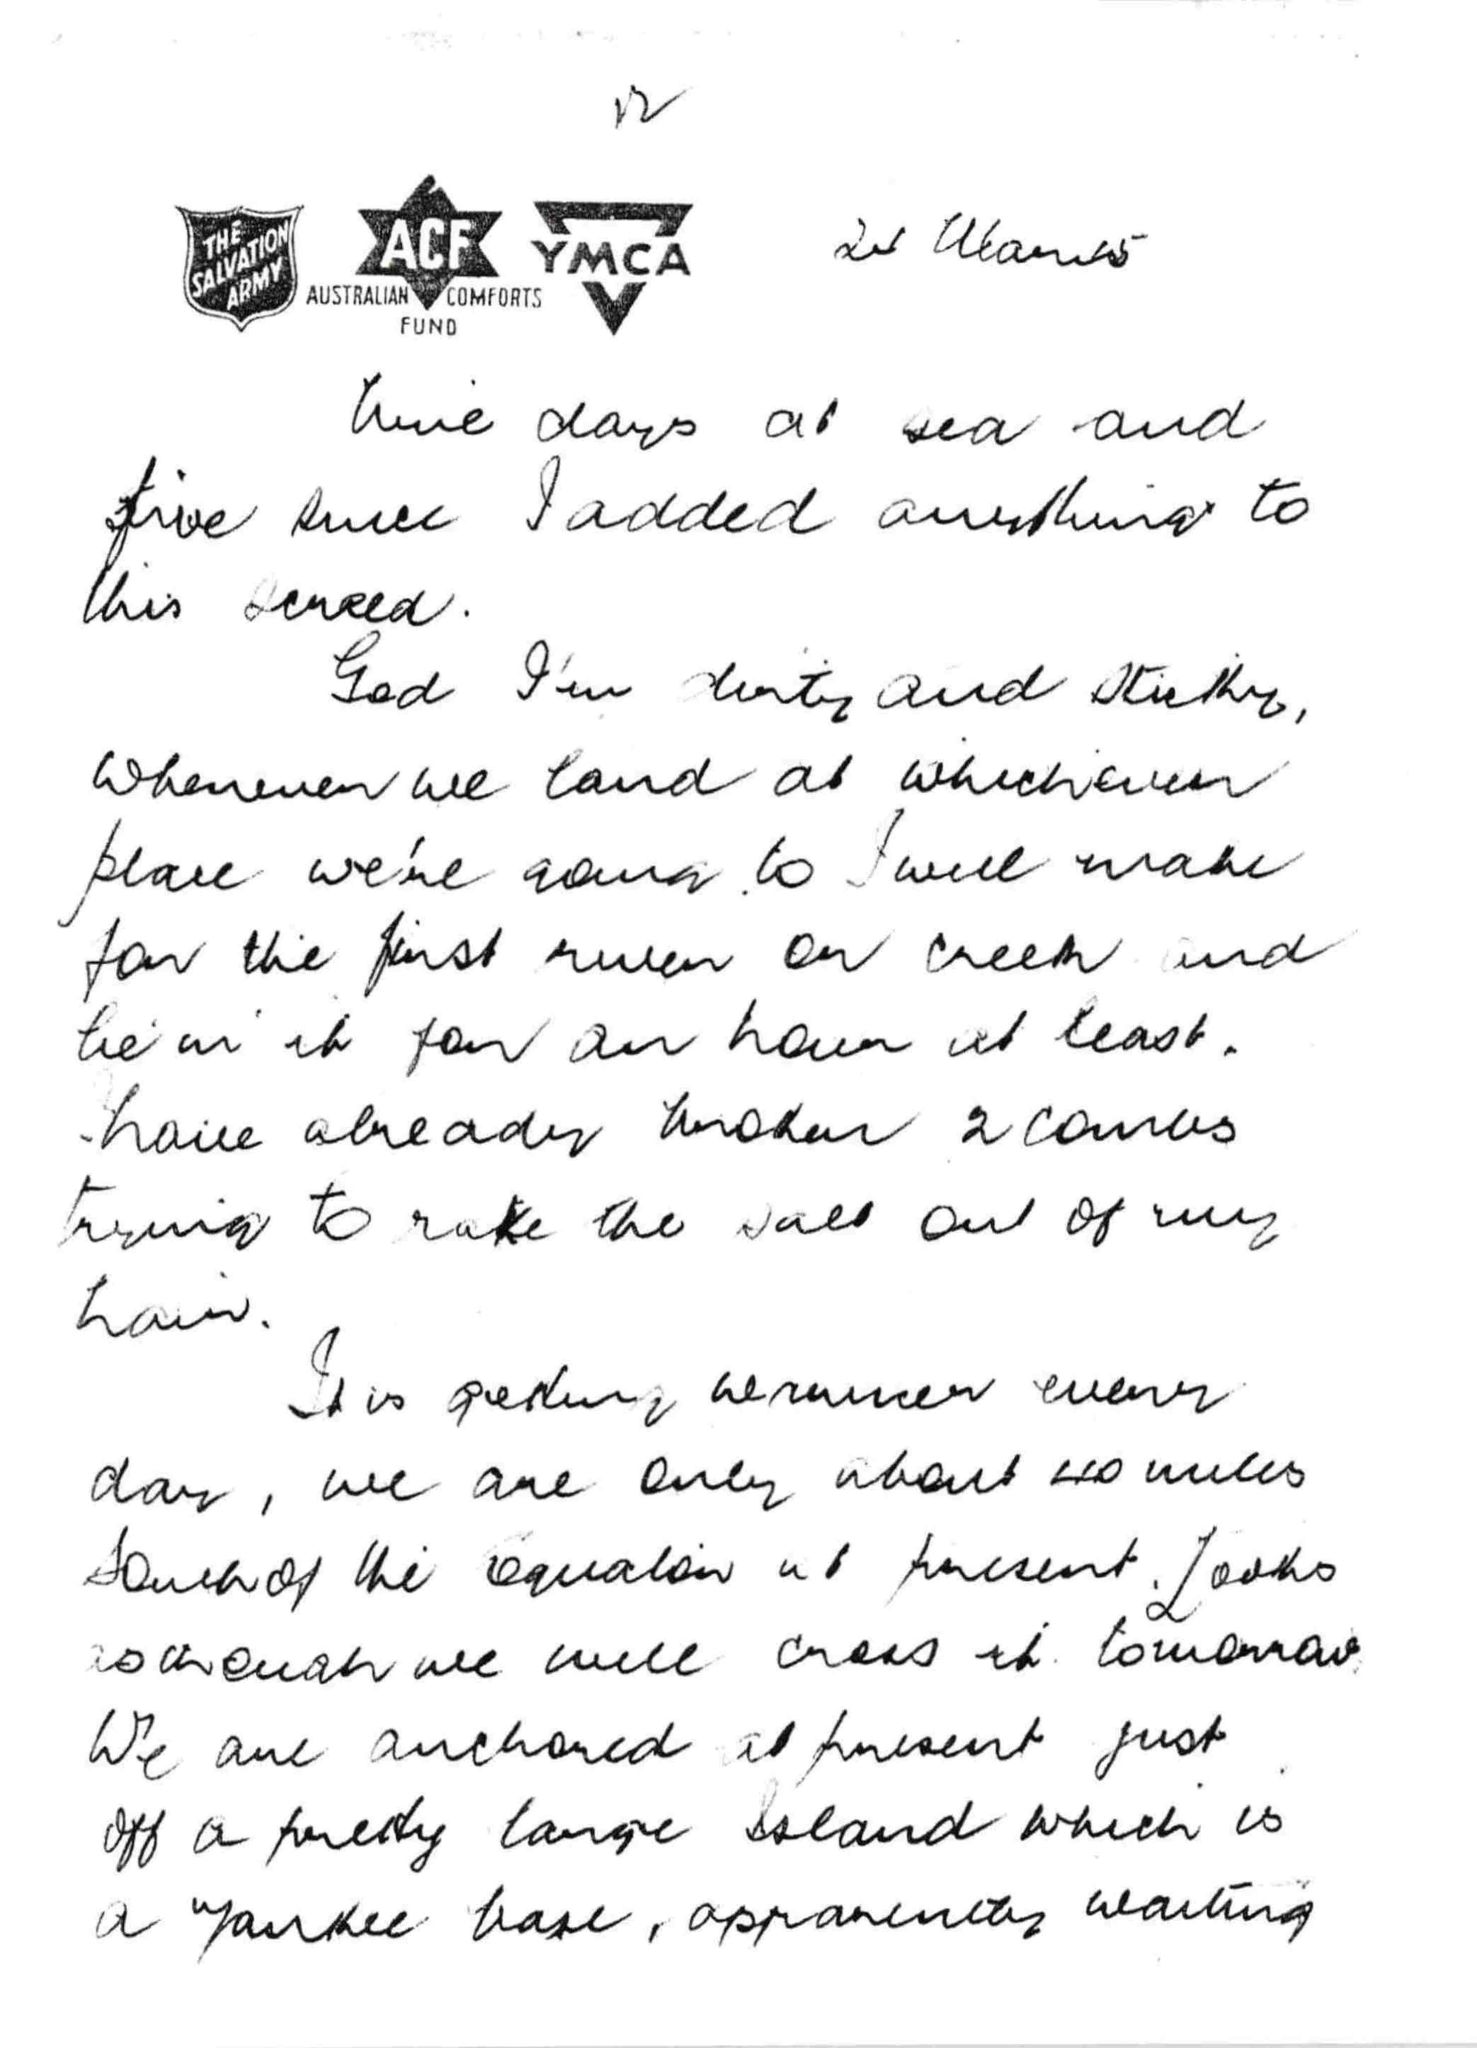 12
THE SALVATION ARMY
ACF
AUSTRALIAN COMFORTS FUND
YMCA
Nine days at sea and
five since I added anything to
this screed.
God I'm dirty and sticky,
whenever we land at whichever
place we're going to I will make
for the first river or creek and
lie in it for an hour at least.
have already broken 2 combs
trying to rake the salt out of my
hair.
It is getting warmer every
day, we are only about miles
South of the equator at present. Looks
as though we will cross it tomorrow.
We are anchored at present just
off a pretty large Island which is
a Yankee base, apparently waiting